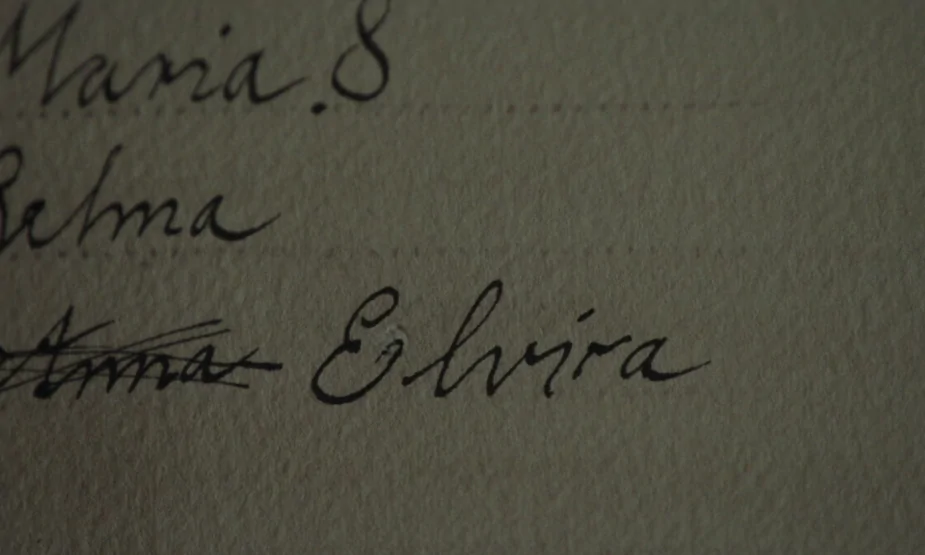 Maria . S
Selma
Anna Elvira